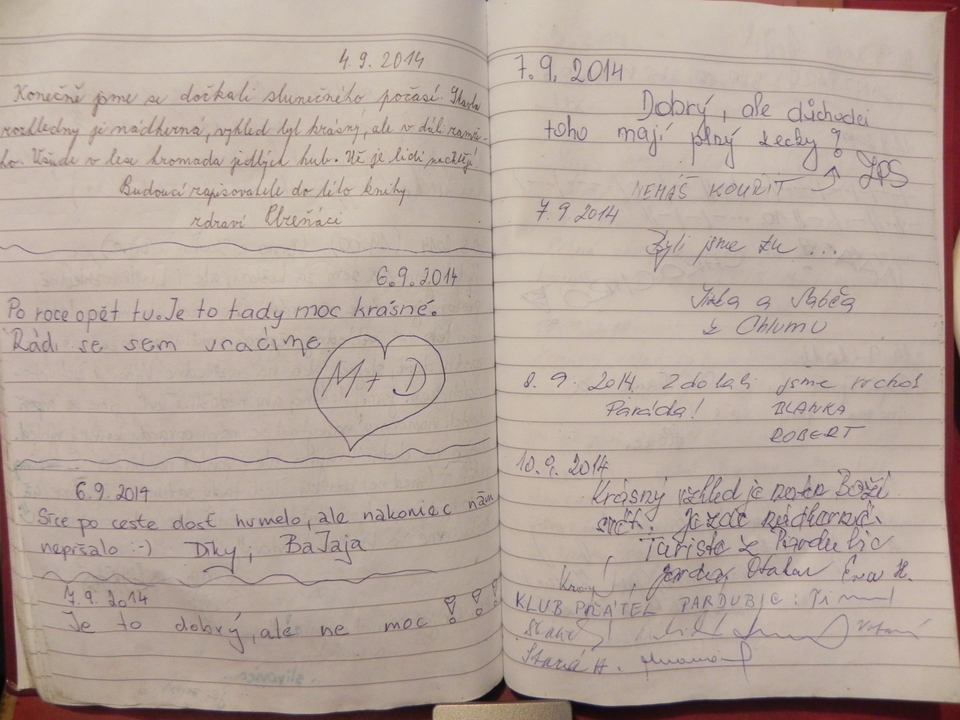 4.9.2014
Konečně jsme se dočkali slunečného počasí. Stavba
rozhledny je nádherná, výhled byl krásný, ale v dáli
Všude v lese hromada jedlých hub. Už je lidi nechtějí
Budoucí zapisovatele do této knihy
zdraví Plzeňáci
6.9.2014
Po roce opět tu. Je to tady moc krásné.
Rádi se sem vracíme
M + D
6.9.2014
Síce po ceste dosť humelo, ale nakoniec nám
nepršalo :-) Díky, BaJaja
7.9.2014
Je to dobrý, ale ne moc !!!
7.9.2014
Dobrý, ale důchodci
toho mají plný kecky!
NEMÁŠ KOUŘIT
7.9.2014
Byli jsme tu ...
a
z Chlumu
8.9.2014 Zdolali jsme vrchol
Paráda! BLANKA
ROBERT
10.9.2014
Krásný vzhled je na ten Boží
svět. Je zde nádherně.
Turisté z Pardubic
Otakar Eva H.
KLUB PŘÁTEL PARDUBIC:
Stará H.